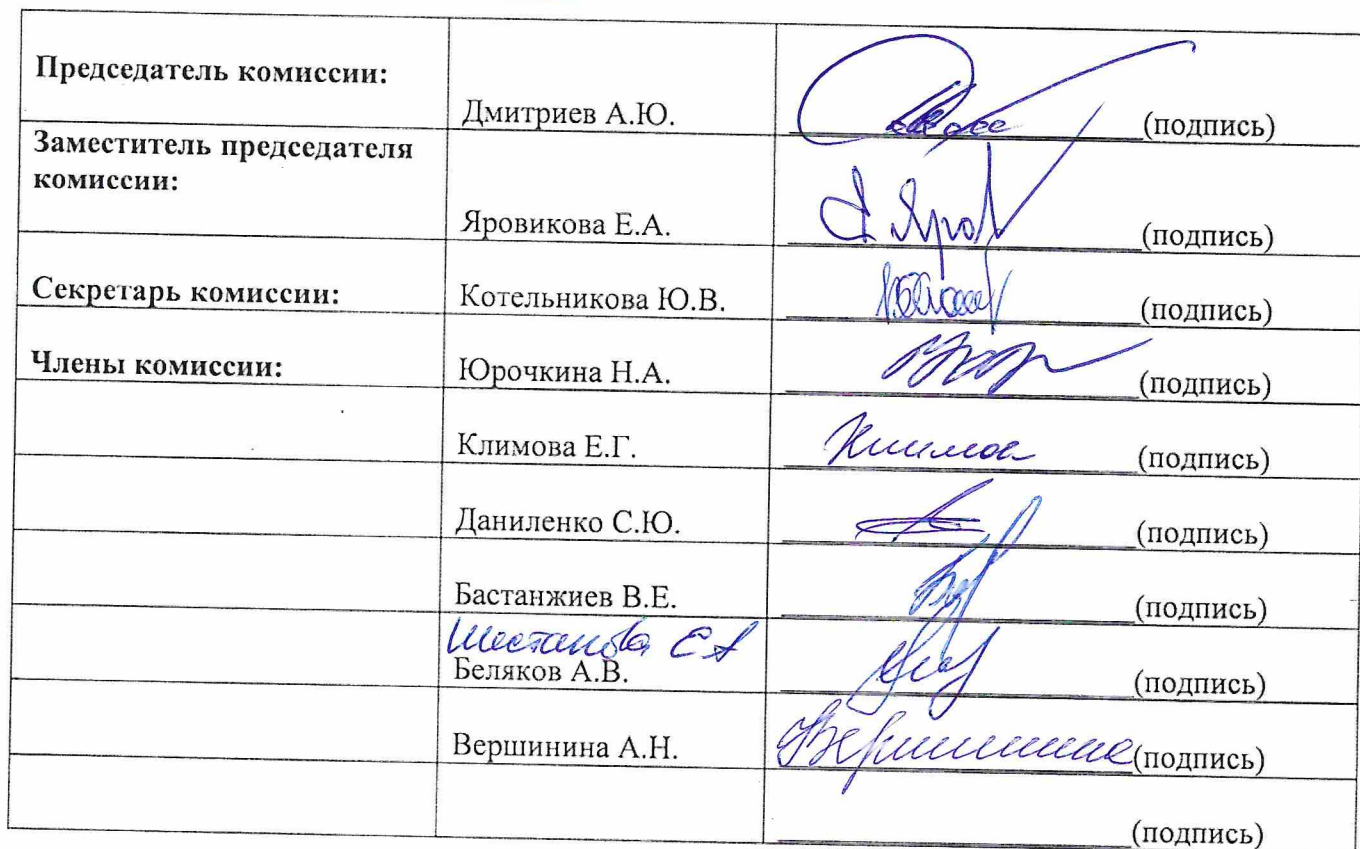 Председатель комиссии:
Дмитриев А.Ю.
(подпись)
Заместитель председателя
комиссии:
Яровикова Е.А.
(подпись)
Секретарь комиссии:
Котельникова Ю.В.
(подпись)
Члены комиссии:
Юрочкина Н.А.
(подпись)
Климова Е.Г.
(подпись)
Даниленко С.Ю.
(подпись)
Бастанжиев В.Е.
(подпись)
Шестакова Е А
Беляков А.В.
(подпись)
Вершинина А.Н.
(подпись)
(подпись)